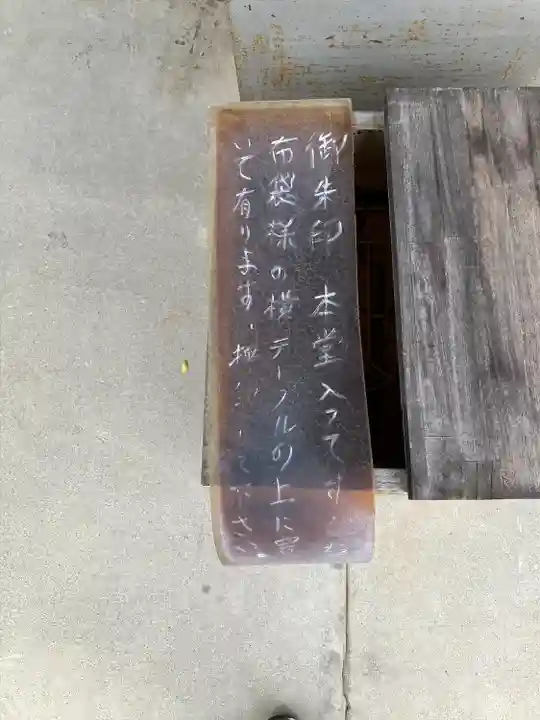 御朱印 本堂入ってすぐ
布袋様の横テーブルの上に置
いて有ります、して下さい